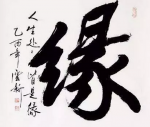 緣
人生处处皆是缘
乙酉年